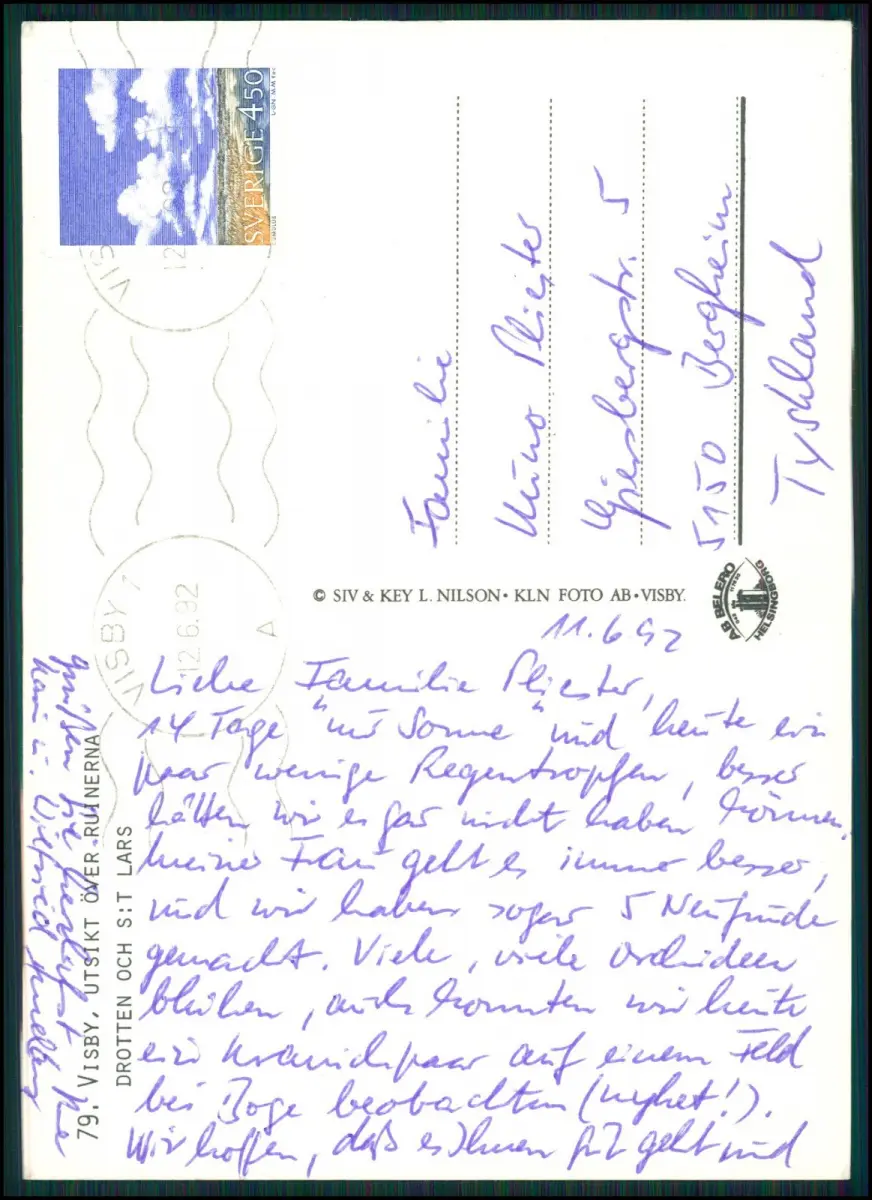 SVERIGE 4.50
VISBY 1
12.6.92
A
Familie
Kuno Pliester
Giersbergstr. 5
5150 Bergheim
Tyskland
© SIV & KEY L. NILSON • KLN FOTO AB • VISBY.
AB BELERO
HELSINGBORG
79. VISBY, UTSIKT ÖVER RUINERNA
DROTTEN OCH S:T LARS
11.6.92
Liebe Familie Pliester,
14 Tage "nur Sonne" und heute ein
paar wenige Regentropfen, besser
hätten wir es gar nicht haben können.
Meiner Frau geht es immer besser,
und wir haben sogar 5 Neufunde
gemacht. Viele, viele Orchideen
blühen, auch konnten wir heute
ein Kranichpaar auf einem Feld
bei Boge beobachten (nyhet!).
Wir hoffen, daß es Ihnen gut geht und
grüßen Sie herzlichst, Ihre
u.